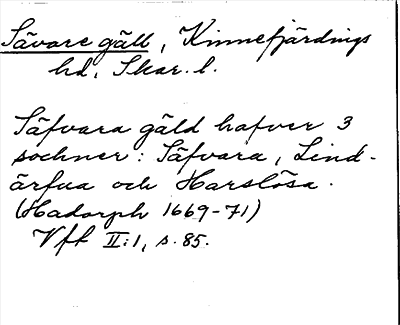 Sävare gäll, Kinnefjärdings
hd, Skar. l.
Säfvara gäld hafver 3
sochner: Säfvara, Lind-
ärfua och Harslösa.
(Hadorph 1669-71)
Vft II:1, s. 85.